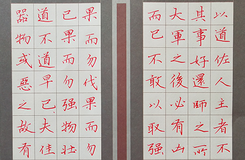 以道佐人主者不
其事好還師之所
大軍之後必有凶
而已不敢以取强
果而勿伐果而勿
已果而勿强物壯
道不道早已夫佳
器物或惡之故有